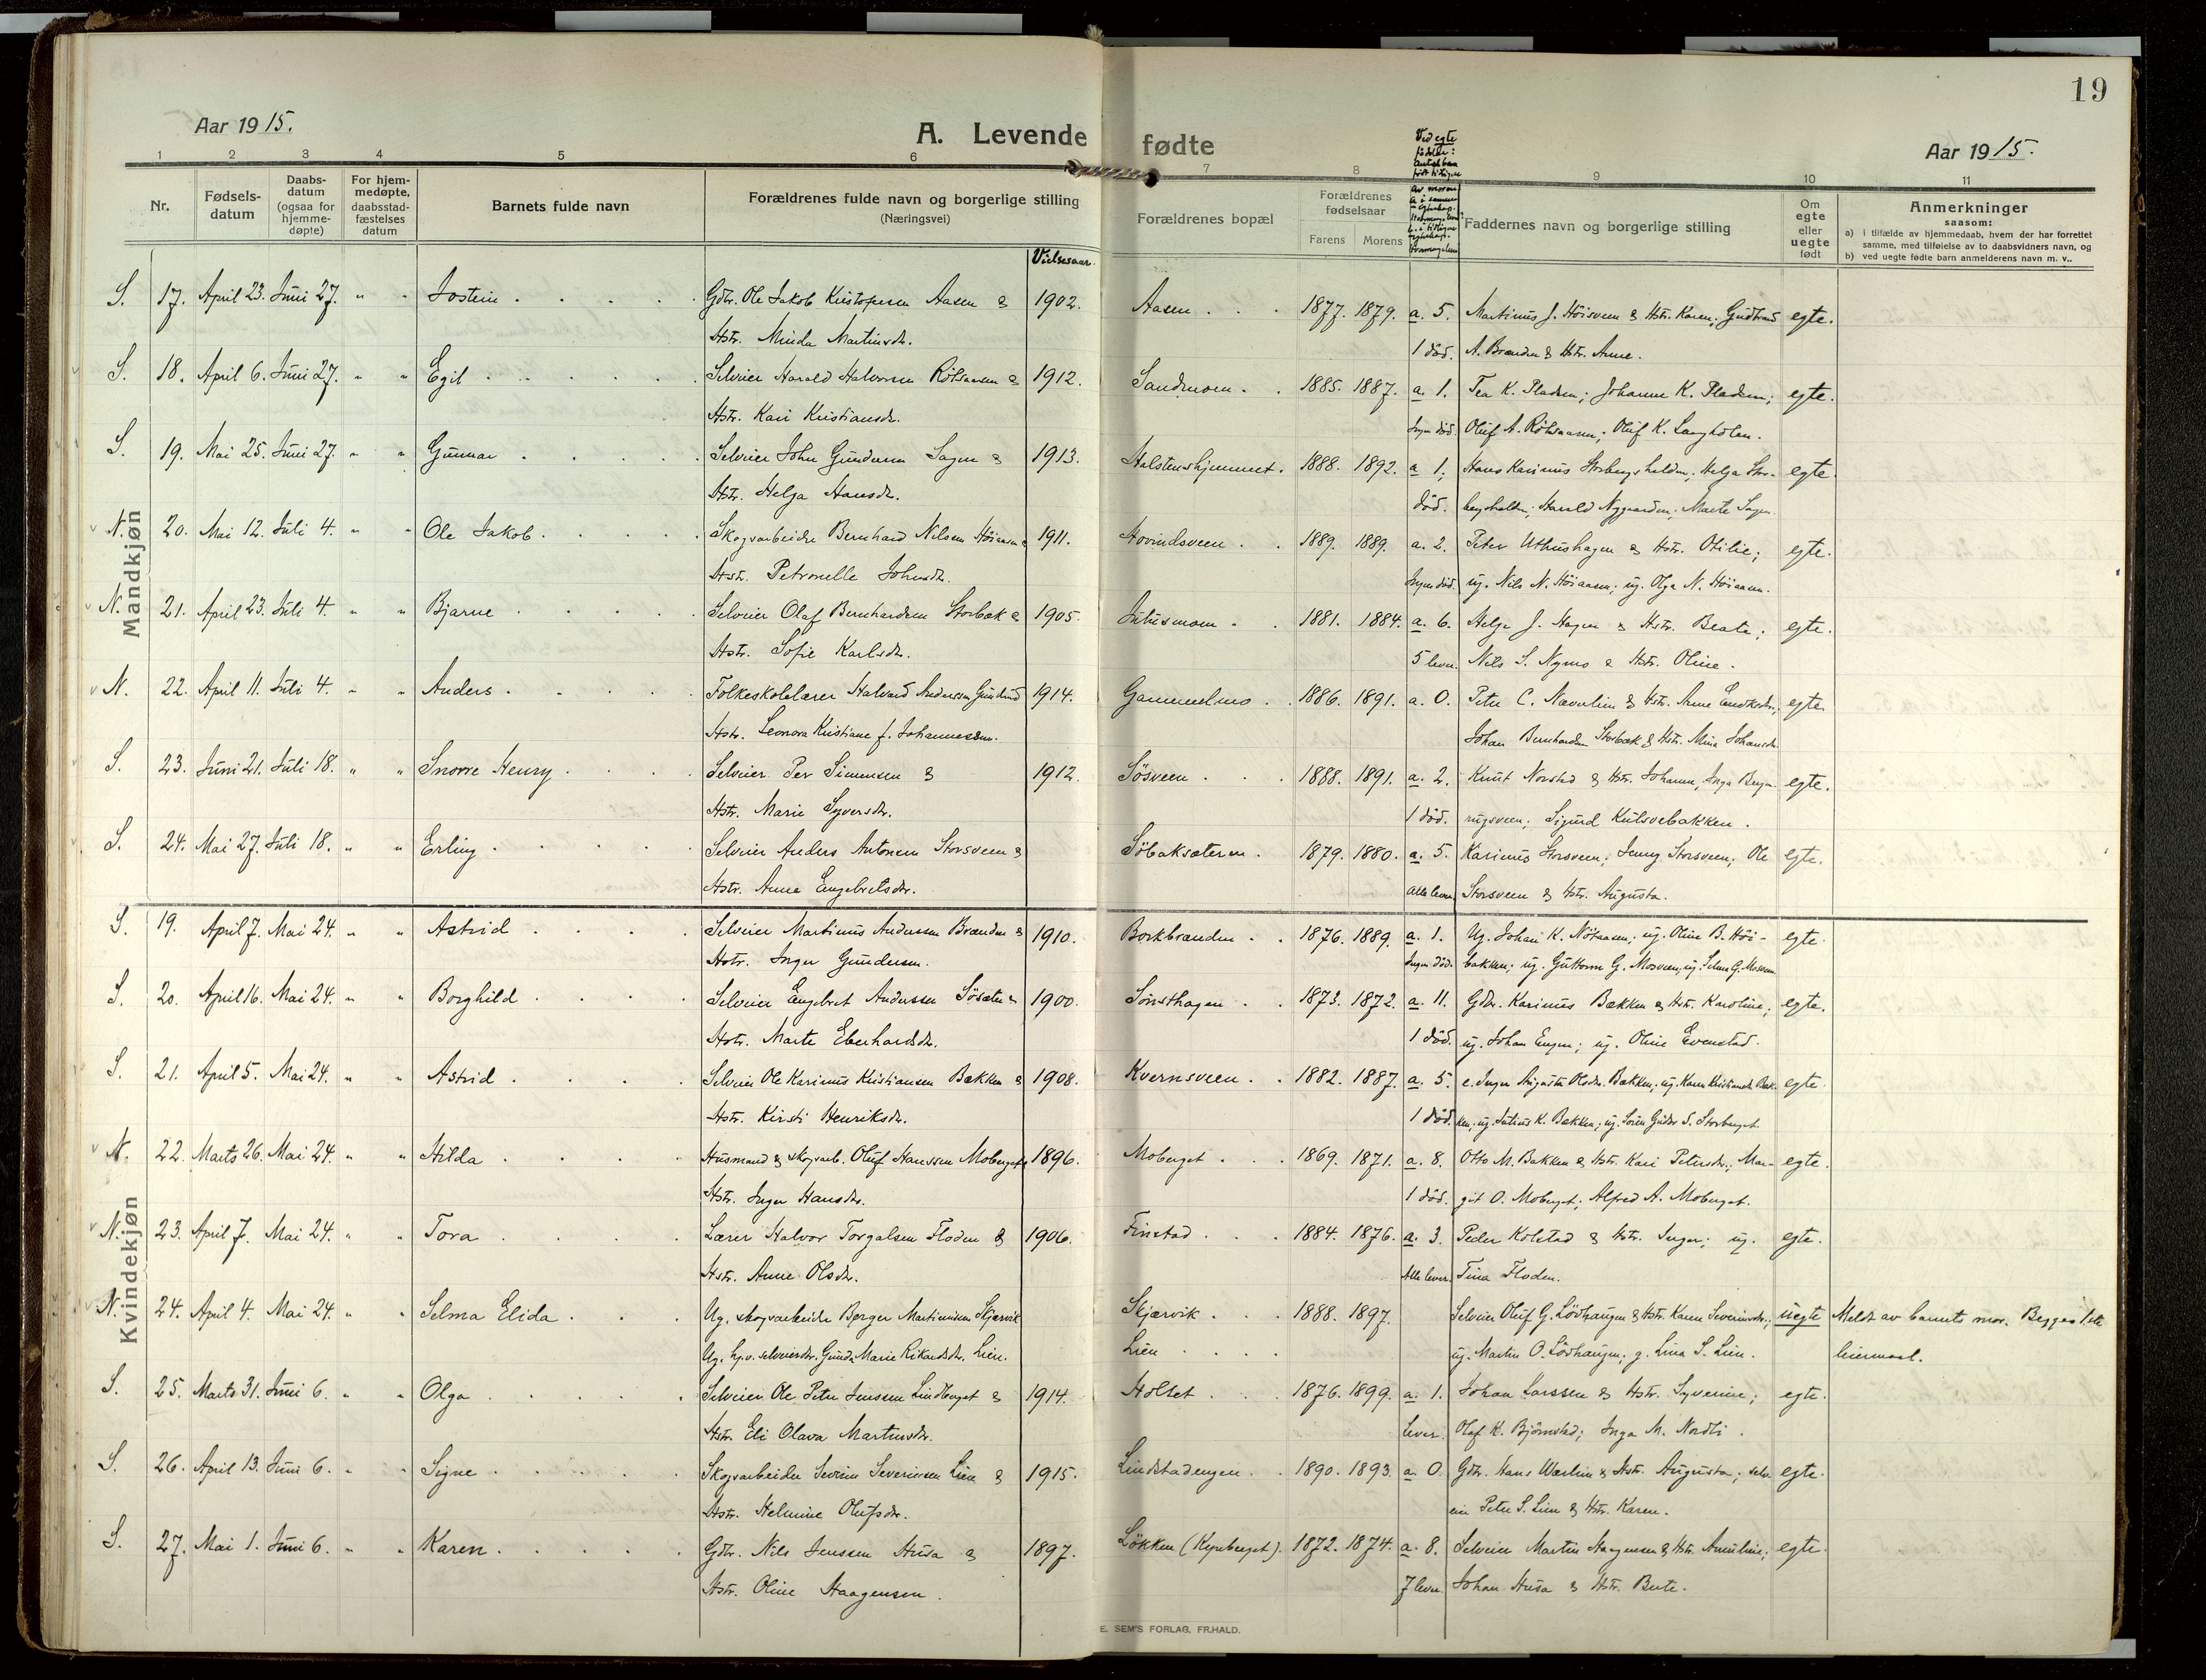 19
Aar 19 15.
A. Levende fødte
Aar 19 15.
1 2 3 4 5 6 7 8 9 10 11
Nr.
Fødsels-datum
Daabs-datum (ogsaa for hjemme-døpte)
For hjem-medøpte, daabsstad-fæstelses datum
Barnets fulde navn
Forældrenes fulde navn og borgerlige stilling (Næringsvei)
Vielsesaar.
Forældrenes bopæl
Forældrenes fødselsaar
Farens Morens
Faddernes navn og borgerlige stilling
Om egte eller uegte født
Anmerkninger
saasom:
a) i tilfælde av hjemmedaab, hvem der har forrettet samme, med tilføielse av to daabsvidners navn, og
b) ved uegte fødte barn anmelderens navn m. v..
Mandkjøn
S. 17. April 23. Juni 27. " " Jostein Gdbr. Ole Jakob Kristofersen Aasen & 1902. Aasen 1877. 1879. a. 5. Martinus J. Höisveen & Hstr. Karen; Gudbrand egte.
Hstr. Minda Martinsdr. 1 död. A. Brænden & Hstr. Anne.
S. 18. April 6. Juni 27. " " Egil Selveier Harald Halvorsen & 1912. Sandmoen 1885. 1887. a. 1. Tea K. Pladsen; Johanne K. Pladsen; egte.
Hstr. Kari Kristiansdr. Ingen död. Oluf A.; Oluf K.
S. 19. Mai 25. Juni 27. " " Gunnar Selveier John Gundersen Sagen & 1913. Halstenshjemmet. 1888. 1892. a 1, Hans Karinus Storbergshalden; Helga Stor- egte.
Hstr. Helga Hansdr. död. bergshalden; Harald Nygaarden; Marte Sagen.
N. 20. Mai 12. Juli 4. " " Ole Jakob Skogsarbeider Bernhard Nilsen Höiaasen & 1911. Hovindsveen 1889. 1889. a. 2. Peter Uthushagen & Hstr. Otilie; egte.
Hstr. Petronelle Johnsdr. Ingen död. ug. Nils N. Höiaasen; ug. Olga N. Höiaasen.
N. 21. April 23. Juli 4. " " Bjarne Selveier Olaf Bernhardsen Storbæk & 1905. Juliusmoen 1881. 1884. a. 6. Helge J. Hagen & Hstr. Beate; egte.
Hstr. Sofie Karlsdr. 5 lever. Nils S. Nymo & Hstr. Oline.
N. 22. April 11. Juli 4. " " Anders Folkeskolelærer Halvard Andersen Grindrud 1914. Gammelmo 1886. 1891. a. 0. Peter C. Næverlien & Hstr. Anne; egte.
Hstr. Leonora Kristiane f. Johannessen. Johan Bernhardsen Storbæk & Hstr. Mina Johansdr.
S. 23. Juni 21. Juli 18. " " Snorre Henry Selveier Per Simensen & 1912. Sösveen 1888. 1891. a. 2. Knut Norstad & Hstr. Johanne, Inga egte.
Hstr. Marie Syversdr. 1 död. Sigurd Kulsvebakken.
S. 24. Mai 27. Juli 18. " " Erling Selveier Anders Antonsen Storsveen & Söbaksæteren 1879. 1880. a. 5. Karinus Storsveen; Jenny Storsveen; Ole egte.
Hstr. Anne Engebretsdr. Alle lever. Storsveen & Hstr. Augusta.
Kvindekjøn
S. 19. April 7. Mai 24. " " Astrid Selveier Martinus Anderssen Brænden & 1910. Borkbrænden 1876. 1889. a. 1. Ug. Johan K.; ug. Oline B. Höi- egte.
Hstr. Inger Gundersen. Ingen död. bakken; ug. Guttorm G. Mosveen; ug. Selma G. Mosveen
S. 20. April 16. Mai 24. " " Borghild Selveier Engebret Anderssen Sösæter & 1900. Sönsthagen 1873. 1872. a. 11. Gdbr. Karinus Bækken & Hstr. Karoline; egte.
Hstr. Marte Eberhardsdr. 1 död. ug. Johan Engen; ug. Oline Evenstad.
S. 21. April 5. Mai 24. " " Astrid Selveier Ole Karinus Kristiansen Bækken & 1908. Kvernsveen 1882. 1887. a. 5. e. Inger Augusta Olsdr. Bækken; ug. Karen Kristiansdr. Bæk- egte.
Hstr. Kirsti Henriksdr. 1 död. ken; ug. Julius K. Bækken; ug. Sören S. Storberget.
N. 22. Marts 26. Mai 24. " " Hilda Husmand & skogsarb. Oluf Hanssen Moberget & 1896. Moberget 1869. 1871. a. 8. Otto M. Bakken & Hstr. Kari Petersdr.; Mar- egte.
Hstr. Inger Hansdr. 1 död. git O. Moberget; Alfred A. Moberget.
N. 23. April 7. Mai 24. " " Tora Lærer Halvor Torgalsen Floden & 1906. Finstad 1884. 1876. a. 3. Peder Kolstad & Hstr. Inger; ug. egte.
Hstr. Anne Olsdr. Alle lever. Tina Floden.
N. 24. April 4. Mai 24. " " Selma Elida Ug. skogsarbeider Børger Martinussen Skjærvik Skjærvik 1888. 1897. Selveier Oluf G. Lövhaugen & Hstr. Karen Severinsdr.; uegte Meldt av barnets mor. Begges 1ste
Ug. hjv. selveierdr. Gunda Marie Rikardsdr. Lien. Lien ug. Martin O. Lövhaugen; g. Lina S. Lien. leiermaal.
S. 25. Marts 31. Juni 6. " " Olga Selveier Ole Peter Jenssen Lindberget & 1914. Holtet 1876. 1899. a. 1. Johan Larssen & Hstr. Syverine; egte.
Hstr. Eli Olava Martinsdr. lever. Olaf K. Björnstad; Inga M. Nordli.
S. 26. April 13. Juni 6. " " Signe Skogsarbeider Severin Severinsen Lien & 1915. Lindstadengen 1890. 1893. a. 0. Gdbr. Hans & Hstr. Augusta; selv- egte.
Hstr. Helmine Olufsdr. eier Peter S. Lien & Hstr. Karen.
S. 27. Mai 1. Juni 6. " " Karen Gdbr. Nils Jenssen Husa & 1897. Lökken (Kynberget). 1872. 1874. a. 8. Selveier Martin Haagensen & Hstr.; egte.
Hstr. Oline Haagensen. 7 lever. Johan Husa & Hstr. Berte.
E. SEM'S FORLAG, FR.HALD.